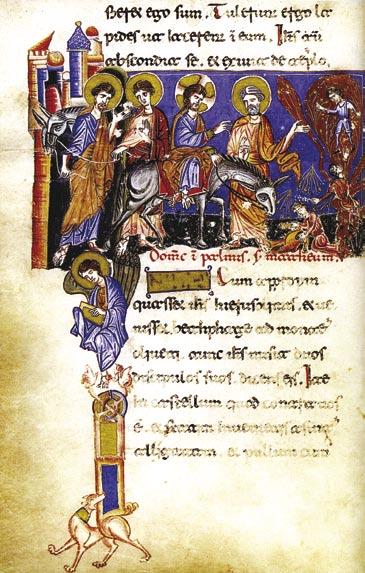 fieret ego sum. Tulerunt ergo la
pides ut iacerent i eum. Ihs aut
abscondit se. et exivit de templo.
Domc i palmis. s. mattheum
Cum appropin
quasset ihs hierosolimis. et ve
nisset bethphage ad monte
oliveti. tunc ihs misit duos
discipulos suos. dicens eis. Ite
in castellum quod contra vos
e. et statim invenietis asina
alligatam. et pullum cum